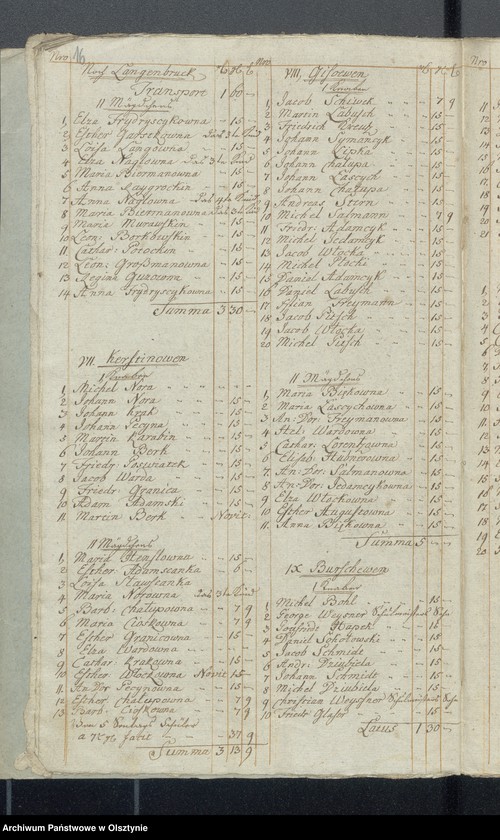 Nro. 16
Noch Langenbruck
Transport 1 60 —
II Mägdchens
1, Elza Frydryscykowna - 15 -
2 Esther
3 Loisa Langowna - 15 -
4 Elza Naglowna
5 Maria Biermanowna - 15 -
6 Anna - 15 -
7 Anna Naglowna
8 Maria Biermanowna
9 Maria Murawskin - 15 -
10 Leon: Borkowskin - 15 -
11 Cathar: Potochin - 15 -
12 Leon: Großmanowna - 15 -
13 Regina - 15 -
14 Anna Frydryscykowna - 15 -
Summa 3 30 —
VII. Kerstinowen
I Knaben
1, Michel Nora
2 Johann Nora - 15 -
3 Johann Krak - 15 -
4 Johann Pecyna - 15 -
5 Martin Karabin - 15 -
6 Johann Berk - 15 -
7 Friedr: - 15 -
8 Jacob Warda - 15 -
9 Friedr: Granica - 15 -
10 Adam Adamski - 15 -
11. Martin Berk Novit:
II Mägdchens
1, Maria - 15 -
2 Esther Adamscanka - 6 -
3 Loisa Slawscanka
4 Maria Norowna
5 Barb: Chalupowna - 7 9
6 Maria Cioskowna - 7 9
7 Esther Granicowna - 15 -
8 Elza Wardowna
9 Cathar: Krakowna - 15 -
10 Esther Wlockowna Novit: - 15 -
11 An: Dor: Pecynowna - 15 -
12 Esther Chalupowna - 7 9
13 Barb: Cioskowna - 7 9
Von 5 Sontags Schüler
- 37 9
Summa 3 13 9
Nro.
VIII. Gisewen
I Knaben
1, Jacob Schiwek - 7 9
2 Martin Labusch - 15 -
3 Friedrich Kreutz - 15 -
4 Johann Symanczyk - 15 -
5 Johann Lipka - 15 -
6 Johann Chalupa - 15 -
7 Johann Lascych - 15 -
8 Johann Chalupa - 15 -
9 Andreas Stern - 15 -
10 Michel Salmann - 7 9
11 Friedr: Adamcyk - 15 -
12 Michel Sedamcyk - 15 -
13 Jacob Wlocka - 15 -
14 Michel Plocki - 15 -
15 Daniel Adamcyk - 15 -
16 Daniel Labusch - 15 -
17 Kilian Freymann - 15 -
18 Jacob Pietsch - 15 -
19 Jacob Wlocka - 15 -
20 Michel Pietsch - 15 -
II Mägdchens
1, Maria - 15 -
2 Maria Lascychowna - 15 -
3 An: Dor: Freymanowna - 15 -
4 Wardowna - 15 -
5 Cathar: Lorentzowna - 15 -
6 Elisab: - 15 -
7. An: Dor: Salmanowna - 15 -
8. An: Dor: Sedamcykowna - 15 -
9 Elza Wlockowna - 15 -
10 Esther Augustowna - 15 -
11. Anna - 15 -
Summa 5 — —
IX Burschewen
I Knaben
1, Michel Bohl - 15 -
2 George Weysner
3 Gottfridt - 15
4 Daniel Sokolowski - 15 -
5 Jacob Schmidt - 15 -
6 Andr: Dziubiela - 15 -
7 Johann Schmidt - 15 -
8 Michel Dziubiela - 15 -
9 Christian Weysner
10 Friedr Glaser - 15 -
Latus 1 30 —
Nro
Archiwum Państwowe w Olsztynie